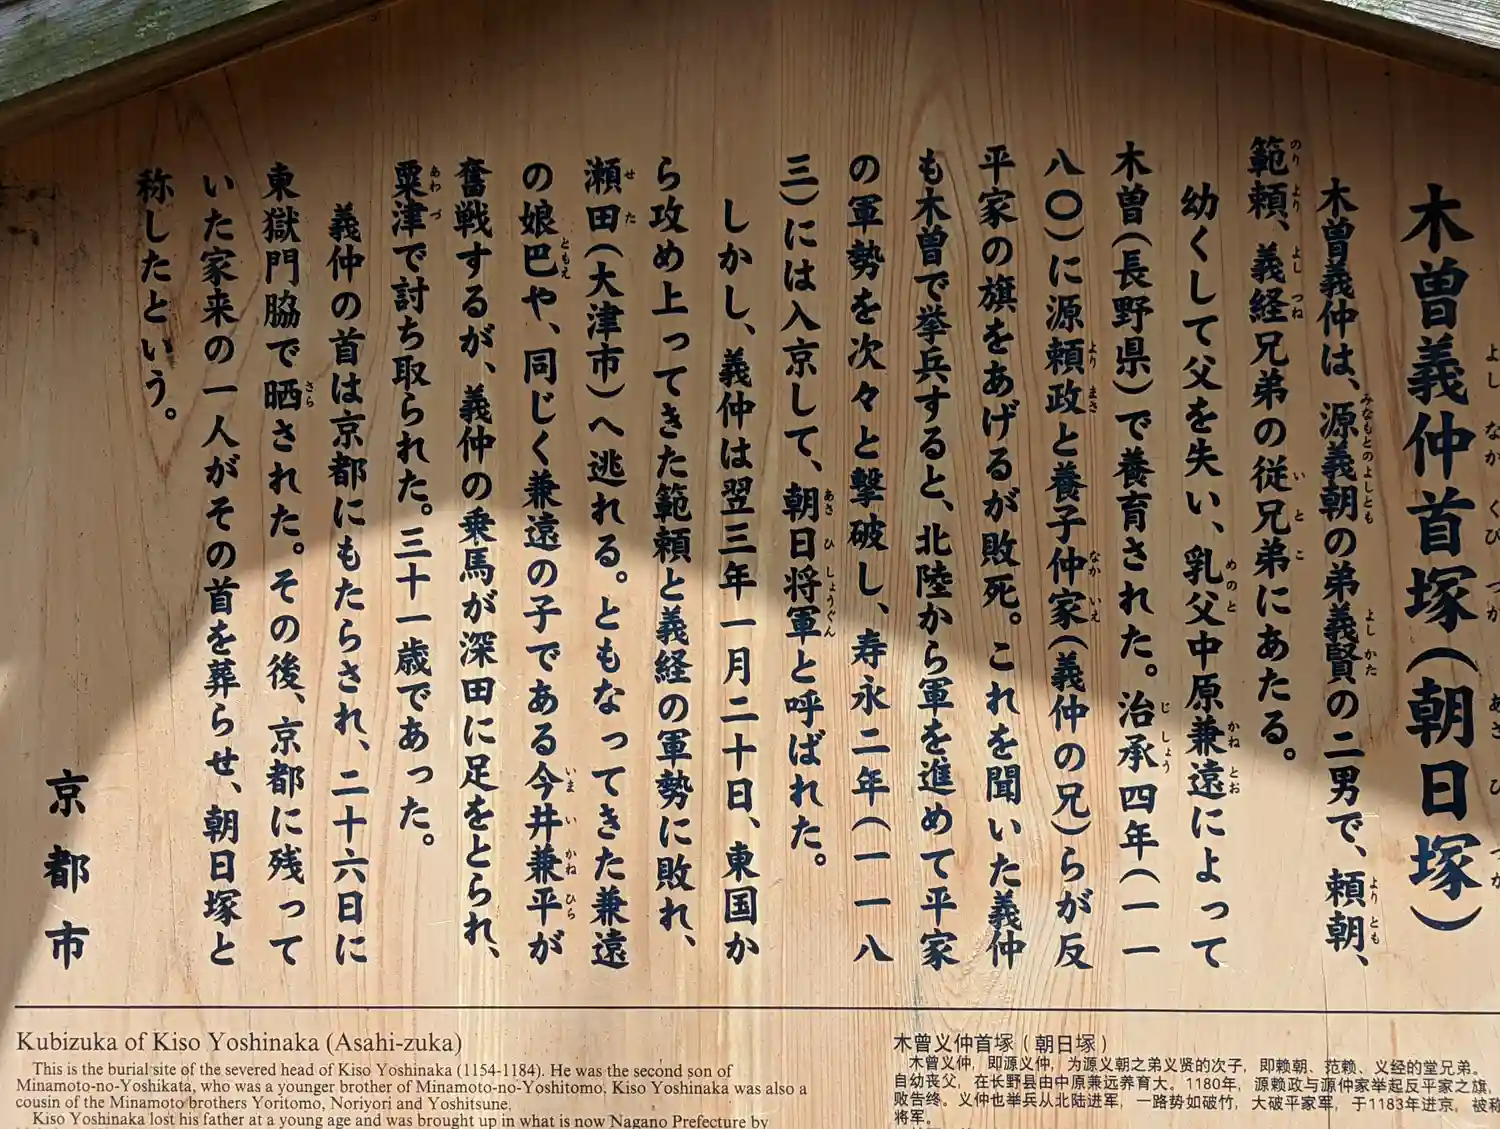 木曽義仲首塚(朝日塚)
木曽義仲は、源義朝の弟義賢の二男で、頼朝、
範頼、義経兄弟の従兄弟にあたる。
幼くして父を失い、乳父中原兼遠によって
木曽(長野県)で養育された。治承四年(一一
八〇)に源頼政と養子仲家(義仲の兄)らが反
平家の旗をあげるが敗死。これを聞いた義仲
も木曽で挙兵すると、北陸から軍を進めて平家
の軍勢を次々と撃破し、寿永二年(一一八
三)には入京して、朝日将軍と呼ばれた。
しかし、義仲は翌三年一月二十日、東国か
ら攻め上ってきた範頼と義経の軍勢に敗れ、
瀬田(大津市)へ逃れる。ともなってきた兼遠
の娘巴や、同じく兼遠の子である今井兼平が
奮戦するが、義仲の乗馬が深田に足をとられ、
粟津で討ち取られた。三十一歳であった。
義仲の首は京都にもたらされ、二十六日に
東獄門脇で晒された。その後、京都に残って
いた家来の一人がその首を葬らせ、朝日塚と
称したという。
京都市
Kubizuka of Kiso Yoshinaka (Asahi-zuka)
This is the burial site of the severed head of Kiso Yoshinaka (1154-1184). He was the second son of
Minamoto-no-Yoshikata, who was a younger brother of Minamoto-no-Yoshitomo. Kiso Yoshinaka was also a
cousin of the Minamoto brothers Yoritomo, Noriyori and Yoshitsune.
Kiso Yoshinaka lost his father at a young age and was brought up in what is now Nagano Prefecture by
木曾义仲首塚(朝日塚)
木曾义仲，即源义仲，为源义朝之弟义贤的次子，即赖朝、范赖、义经的堂兄弟。
自幼丧父，在长野县由中原兼远养育大。1180年，源赖政与源仲家举起反平家之旗，
败告终。义仲也举兵从北陆进军，一路势如破竹，大破平家军，于1183年进京，被称
将军。